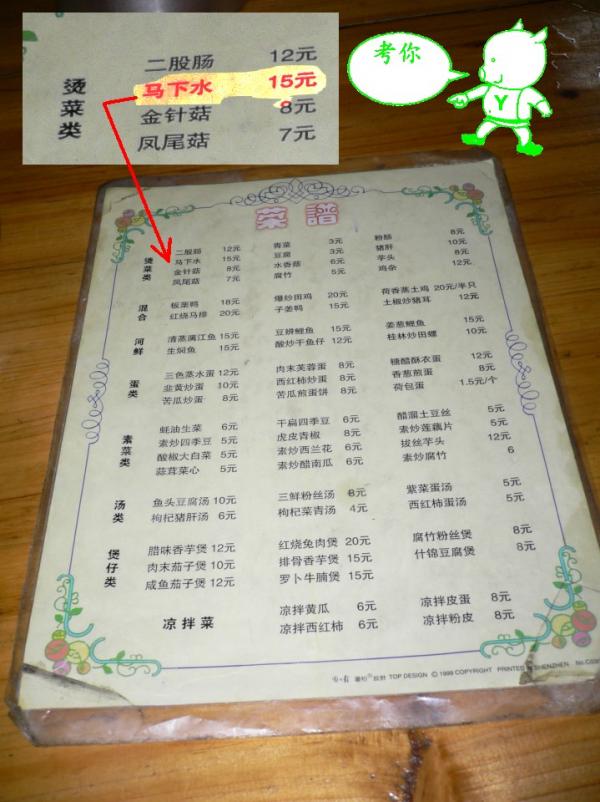 二股肠 12元
马下水 15元
金针菇 8元
凤尾菇 7元
烫菜类
考你
Y
菜譜
烫菜类
二股肠 12元 青菜 3元 粉肠 8元
马下水 15元 豆腐 3元 猪肝 10元
金针菇 8元 水香菇 6元 芋头 8元
凤尾菇 7元 腐竹 5元 鸡杂 12元
混合
板栗鸭 18元 爆炒斑鸡 20元 荷香蒸土鸡 20元/半只
红烧马排 20元 子姜鸭 15元 土椒炒猪耳 12元
河鲜
清蒸漓江鱼 15元 豆辨鲤鱼 15元 姜葱鲤鱼 15元
生焖鱼 15元 酸炒干鱼仔 12元 桂林炒田螺 10元
蛋类
三色蒸水蛋 12元 肉末芙蓉蛋 8元 糖醋酥衣蛋 12元
韭黄炒蛋 10元 西红柿炒蛋 8元 香葱煎蛋 8元
苦瓜炒蛋 8元 苦瓜煎蛋饼 8元 荷包蛋 1.5元/个
素菜类
蚝油生菜 6元 干扁四季豆 5元 醋溜土豆丝 5元
素炒四季豆 5元 虎皮青椒 8元 素炒莲藕片 5元
酸椒大白菜 5元 素炒西兰花 6元 拔丝芋头 12元
蒜茸菜心 5元 素炒醋南瓜 6元 素炒腐竹 6
汤类
鱼头豆腐汤 10元 三鲜粉丝汤 8元 紫菜蛋汤 5元
枸杞猪肝汤 6元 枸杞菜青汤 4元 西红柿蛋汤 5元
煲仔类
腊味香芋煲 12元 红烧兔肉煲 20元 腐竹粉丝煲 8元
肉末茄子煲 10元 排骨香芋煲 15元 什锦豆腐煲 8元
咸鱼茄子煲 12元 罗卜牛腩煲 15元
凉拌菜
凉拌黄瓜 6元 凉拌皮蛋 8元
凉拌西红柿 6元 凉拌粉皮 8元
TOP DESIGN © 1999 COPYRIGHT PRINTED IN SHENZHEN